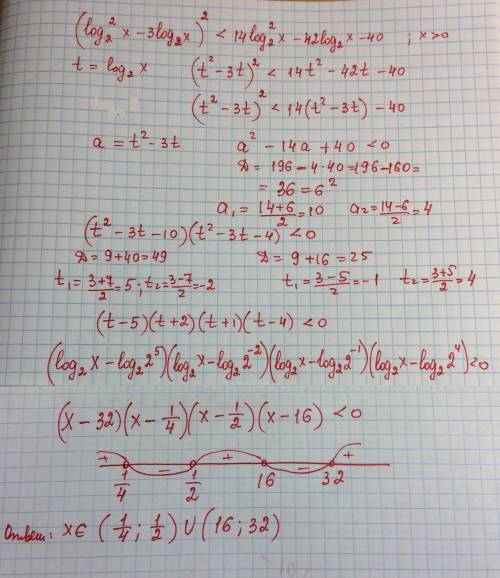 (log₂²x − 3log₂x)² < 14log₂²x − 42log₂x − 40 ; x>0
t = log₂x (t² − 3t)² < 14t² − 42t − 40
(t² − 3t)² < 14(t² − 3t) − 40
a = t² − 3t a² − 14a + 40 < 0
D = 196 − 4·40 = 196 − 160 =
= 36 = 6²
a₁ = (14+6)/2 = 10 a₂ = (14−6)/2 = 4
(t² − 3t − 10)(t² − 3t − 4) < 0
D = 9 + 40 = 49 D = 9 + 16 = 25
t₁ = (3+7)/2 = 5 ; t₂ = (3−7)/2 = −2 t₁ = (3−5)/2 = −1 t₂ = (3+5)/2 = 4
(t − 5)(t + 2)(t + 1)(t − 4) < 0
(log₂x − log₂2⁵)(log₂x − log₂2⁻²)(log₂x − log₂2⁻¹)(log₂x − log₂2⁴) < 0
(x − 32)(x − 1/4)(x − 1/2)(x − 16) < 0
+ − + − +
1/4 1/2 16 32
Ответ: x ∈ (1/4 ; 1/2) ∪ (16 ; 32)